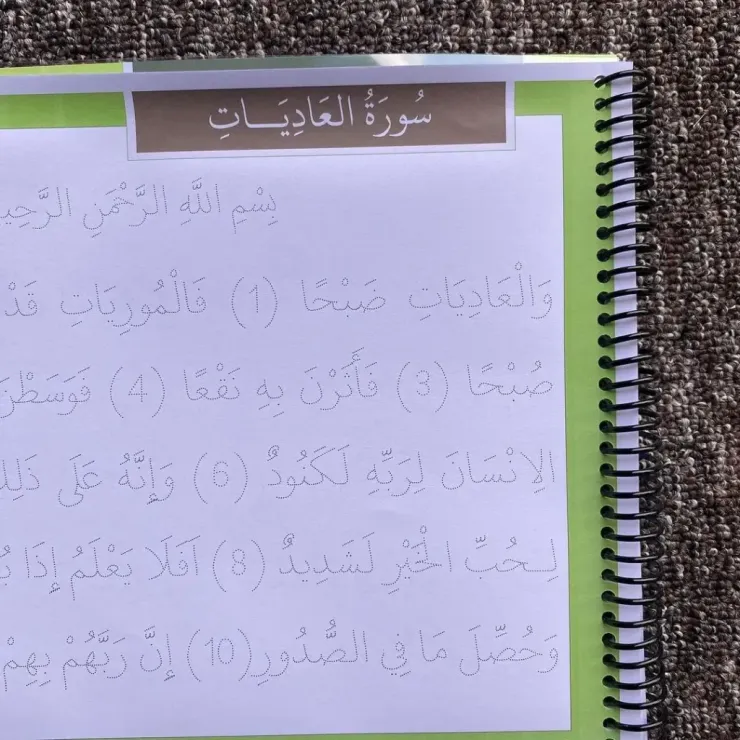 سُورَةُ العَادِيَـــاتِ
بِسْمِ اللَّهِ الرَّحْمَنِ
وَالْعَادِيَاتِ صَبْحًا (1) فَالْمُورِيَاتِ
صُبْحًا (3) فَأَثَرْنَ بِهِ نَقْعًا (4)
الاِنْسَانَ لِرَبِّهِ لَكَنُودٌ (6) وَإِنَّهُ عَلَى
لِحُبِّ الْخَيْرِ لَشَدِيدٌ (8) اَفَلَا يَعْلَمُ إِذَا
وَحُصِّلَ مَا فِي الصُّدُورِ (10) إِنَّ رَبَّهُمْ بِهِمْ